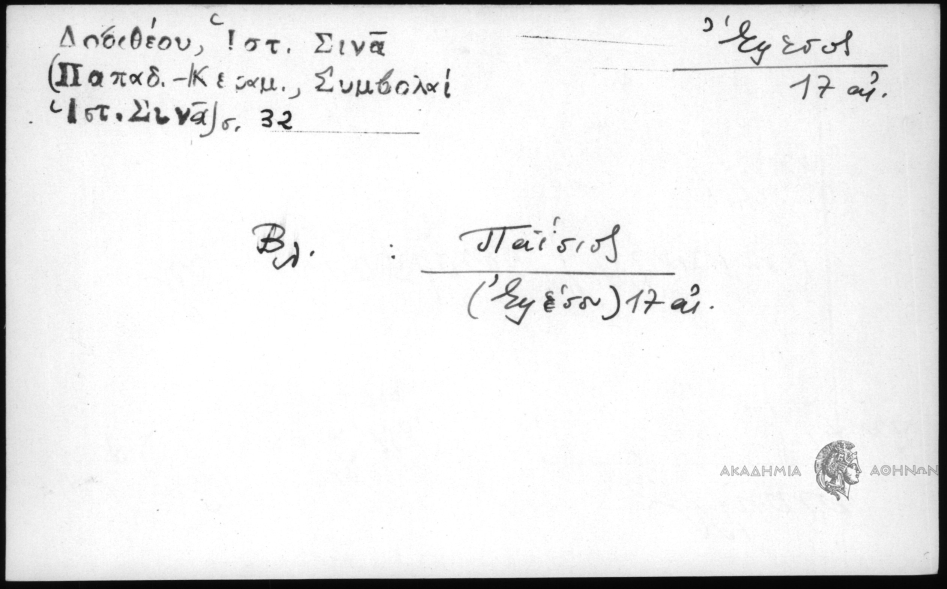 Δοσιθέου, Ἱστ. Σινᾶ
(Παπαδ.-Κεραμ., Συμβολαί
Ἱστ. Σινᾶ) σ. 32
Ἔφεσος
17 αἰ.
Βλ. : Παΐσιος
(Ἐφέσου) 17 αἰ.
ΑΚΑΔΗΜΙΑ ΑΘΗΝΩΝ